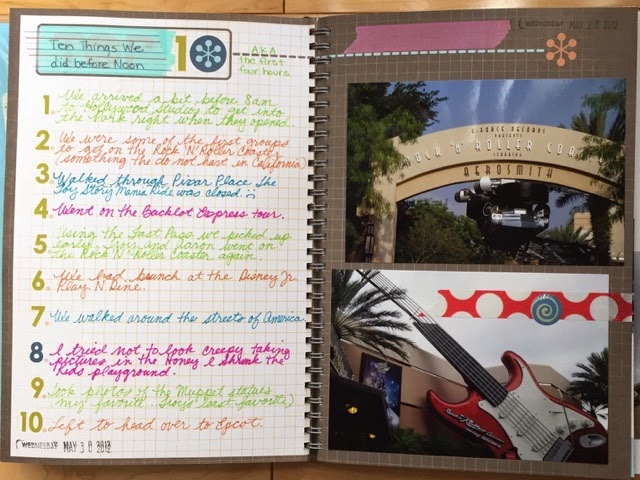 Ten Things We
did before Noon
10
AKA
the first
four hours
1. We arrived a bit before 8am
to Hollywood Studios to get into
the Park right when they opened.
2. We were some of the first groups
to get on the Rock N' Roller Coaster
(something the do not have in California)
3. Walked through Pixar Place the
Toy Story Mania Ride was closed :(
4. Went on the Backlot Express tour.
5. Using the Fast Pass we picked up
early! and Aaron went on
the Rock N' Roller Coaster again.
6. We had brunch at the Disney Jr.
Play N Dine.
7. We walked around the streets of America.
8. I tried not to look creepy taking
pictures in the Honey I Shrunk the
Kids playground.
9. Took photos of the Muppet statues
(my favorite. least favorite)
10. Left to head over to Epcot.
WEDNESDAY MAY 30 2012
WEDNESDAY MAY 30 2012
G-FORCE RECORDS
PRESENTS
ROCK 'N' ROLLER COA
STARRING
AEROSMITH